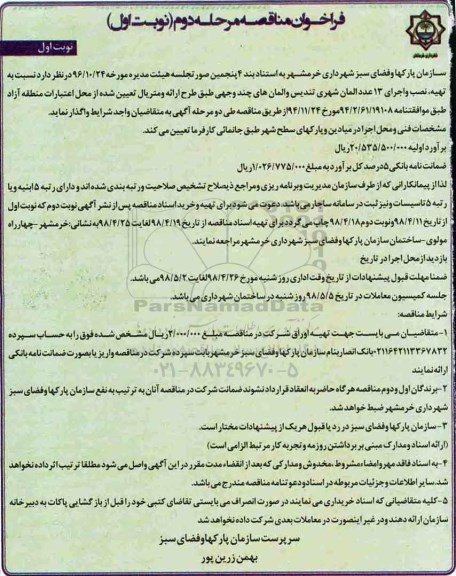 فراخوان مناقصه مرحله دوم (نوبت اول)
نوبت اول
سازمان پارکها وفضای سبز شهرداری خرمشهر به استناد بند ۴ پنجمین صورتجلسه هیئت مدیره مورخه ۹۶/۱۰/۲۴ در نظر دارد نسبت به
تهیه، نصب واجرای ۱۳ عدد المان شهری تندیس والمان های چند وجهی طبق طرح ارائه ومتریال تعیین شده از محل اعتبارات منطقه آزاد
طبق موافقتنامه ۹۴/۲/۶۱/۱۹۱۰۸ مورخ ۹۴/۱۱/۲۴ از طریق مناقصه طی دو مرحله آگهی به متقاضیان واجد شرایط واگذار نماید.
مشخصات فنی ومحل اجرا در میادین وپارکهای سطح شهر طبق جانمائی کارفرما تعیین می کند.
برآورد اولیه ۲۰/۵۳۵/۵۰۰/۰۰۰ ریال
ضمانت نامه بانکی ۵درصد کل برآورد به مبلغ ۱/۰۲۶/۷۷۵/۰۰۰ ریال
لذا از پیمانکارانی که از طرف سازمان مدیریت وبرنامه ریزی ومراجع ذیصلاح تشخیص صلاحیت ورتبه بندی شده اند و دارای رتبه ۵ ابنیه و یا
رتبه ۵ تاسیسات ونیز ثبت در سامانه ساجار می باشد. دعوت می شود برای تهیه وخرید اسناد مناقصه پس از نشر آگهی نوبت دوم که نوبت اول
از تاریخ ۹۸/۴/۱۱ ونوبت دوم ۹۸/۴/۱۸ چاپ می گردد برای تهیه اسناد مناقصه از تاریخ ۹۸/۴/۱۹ لغایت ۹۸/۴/۲۵ به نشانی: خرمشهر - چهارراه
مولوی - ساختمان سازمان پارکها وفضای سبز شهرداری خرمشهر مراجعه نمایند.
بازدید از محل اجرا در تاریخ
ضمنا مهلت قبول پیشنهادات از تاریخ وقت اداری روز شنبه مورخ ۹۸/۴/۲۶ لغایت ۹۸/۵/۲ می باشد.
جلسه کمیسیون معاملات در تاریخ ۹۸/۵/۵ روز شنبه در ساختمان شهرداری می باشد.
شرایط مناقصه:
۱- متقاضیان می بایست جهت تهیه اوراق شرکت در مناقصه مبلغ ۳/۰۰۰/۰۰۰ ریال مشخص شده فوق را به حساب سپرده
بانک انصار بنام سازمان پارکها وفضای سبز خرمشهر بابت سپرده شرکت در مناقصه واریز یا بصورت ضمانت نامه بانکی
ارائه نمایند
۲- برندگان اول ودوم مناقصه هرگاه حاضر به انعقاد قرارداد نشوند ضمانت شرکت در مناقصه آنان به ترتیب به نفع سازمان پارکها وفضای سبز
شهرداری خرمشهر ضبط خواهد شد.
۳- سازمان پارکها وفضای سبز در رد یا قبول هر یک از پیشنهادات مختار است.
(ارائه اسناد ومدارک مبنی بر برداشتن روزمه وتجربه کار مرتبط الزامی است)
۴- به اسناد فاقد مهر وامضاء، مشروط، مخدوش ومدارکی که بعد از انقضاء مدت مقرر در این آگهی واصل می شود مطلقا ترتیب اثر داده نخواهد
شد. سایر اطلاعات وجزئیات مربوطه در اسناد ودعوتنامه مناقصه مندرج می باشد.
۵- کلیه متقاضیانی که اسناد خریداری می نمایند در صورت انصراف می بایستی تقاضای کتبی خود را قبل از باز گشایی پاکات به دبیرخانه
سازمان ارائه دهند ودر غیر اینصورت در معاملات بعدی شرکت داده نخواهد شد
سرپرست سازمان پارکهاوفضای سبز
بهمن زرین پور
ParsNamadData
۰۲۱-۸۸۳۴۹۶۷۰-۵